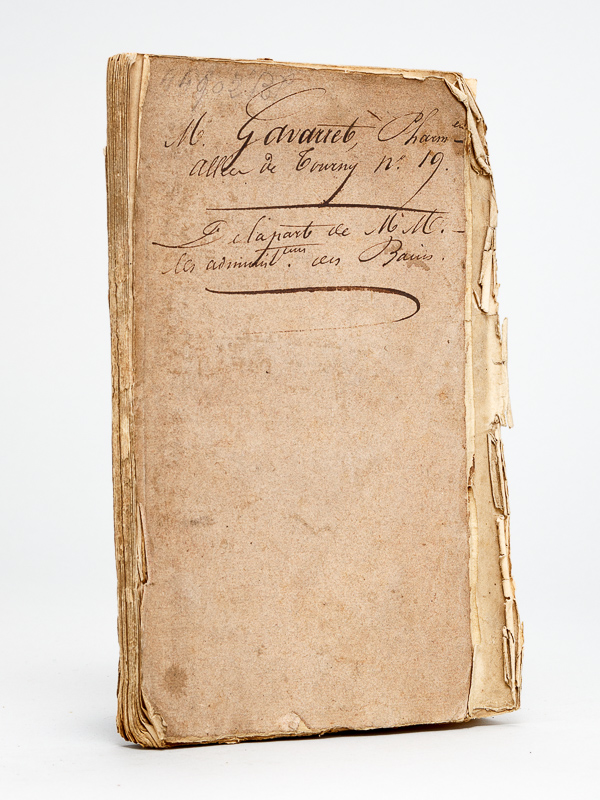 Mr Gavarret, Pharm-en
allée de Tourny no. 19.
De la part de MrM. -
les administteurs. des Bains.